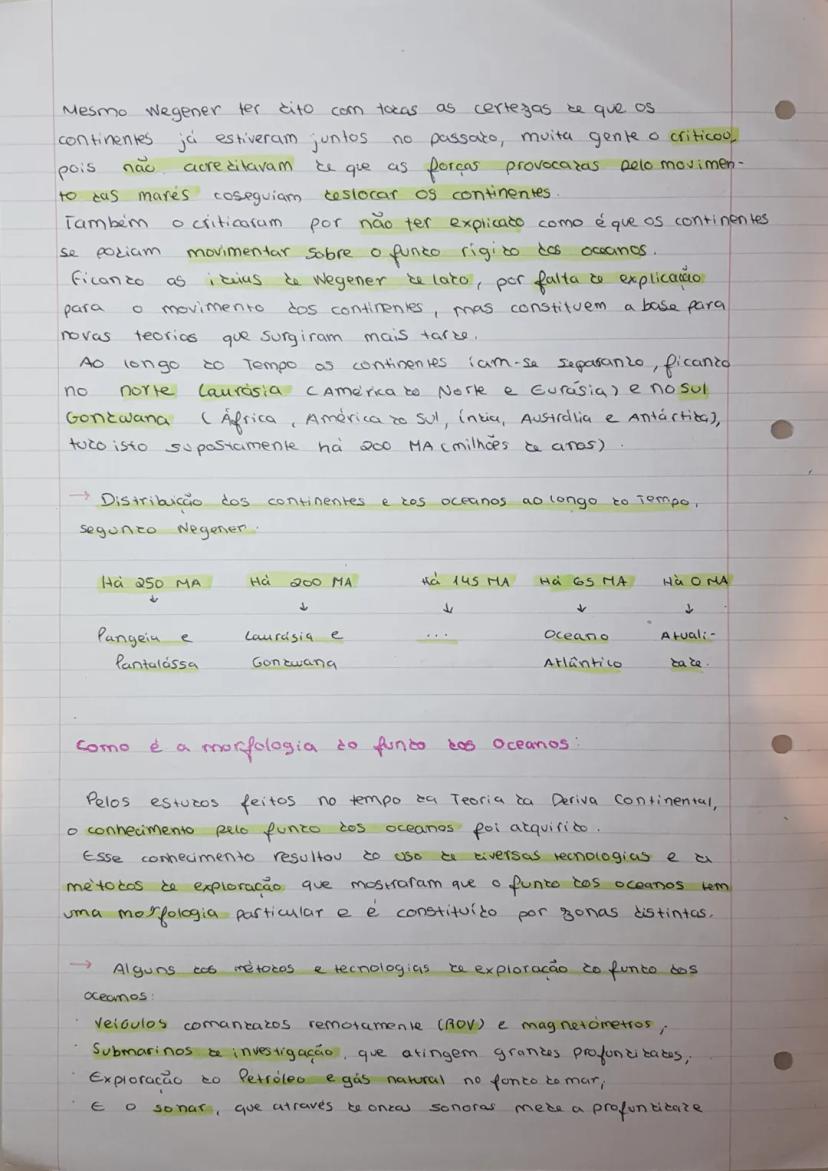 Mesmo Wegener ter dito com todas as certezas de que os
continentes já estiveram juntos no passado, muita gente o criticou,
pois não acreditavam de que as forças provocadas pelo movimen-
to das marés coseguiam deslocar os continentes.
Também o criticaram por não ter explicado como é que os continentes
se podiam movimentar sobre o fundo rígido dos oceanos.
Ficando as ideias de Wegener de lado, por falta de explicação
para o movimento dos continentes, mas constituem a base para
novas teorias que surgiram mais tarde.
Ao longo do Tempo os continentes iam-se separando, ficando
no norte Laurásia (América do Norte e Eurásia) e no sul
Gondwana (África, América do Sul, Índia, Austrália e Antártida),
tudo isto supostamente há 200 MA (milhões de anos).
→ Distribuição dos continentes e dos oceanos ao longo do Tempo,
segundo Wegener.
Há 250 MA Há 200 MA Há 145 MA Há 65 MA Há 0 MA
↓ ↓ ↓ ↓ ↓
Pangeia e Laurásia e ... Oceano Atuali-
Pantalássa Gondwana Atlântico dade.
Como é a morfologia do fundo dos Oceanos:
Pelos estudos feitos no tempo da Teoria da Deriva Continental,
o conhecimento pelo fundo dos oceanos foi adquirido.
Esse conhecimento resultou do uso de diversas tecnologias e de
métodos de exploração que mostraram que o fundo dos oceanos tem
uma morfologia particular e é constituído por zonas distintas.
→ Alguns dos métodos e tecnologias de exploração do fundo dos
oceanos:
· Veículos comandados remotamente (ROV) e magnetómetros;
· Submarinos de investigação, que atingem grandes profundidades;
· Exploração do Petróleo e gás natural no fundo do mar;
· E o sonar, que através de ondas sonoras mede a profundidade